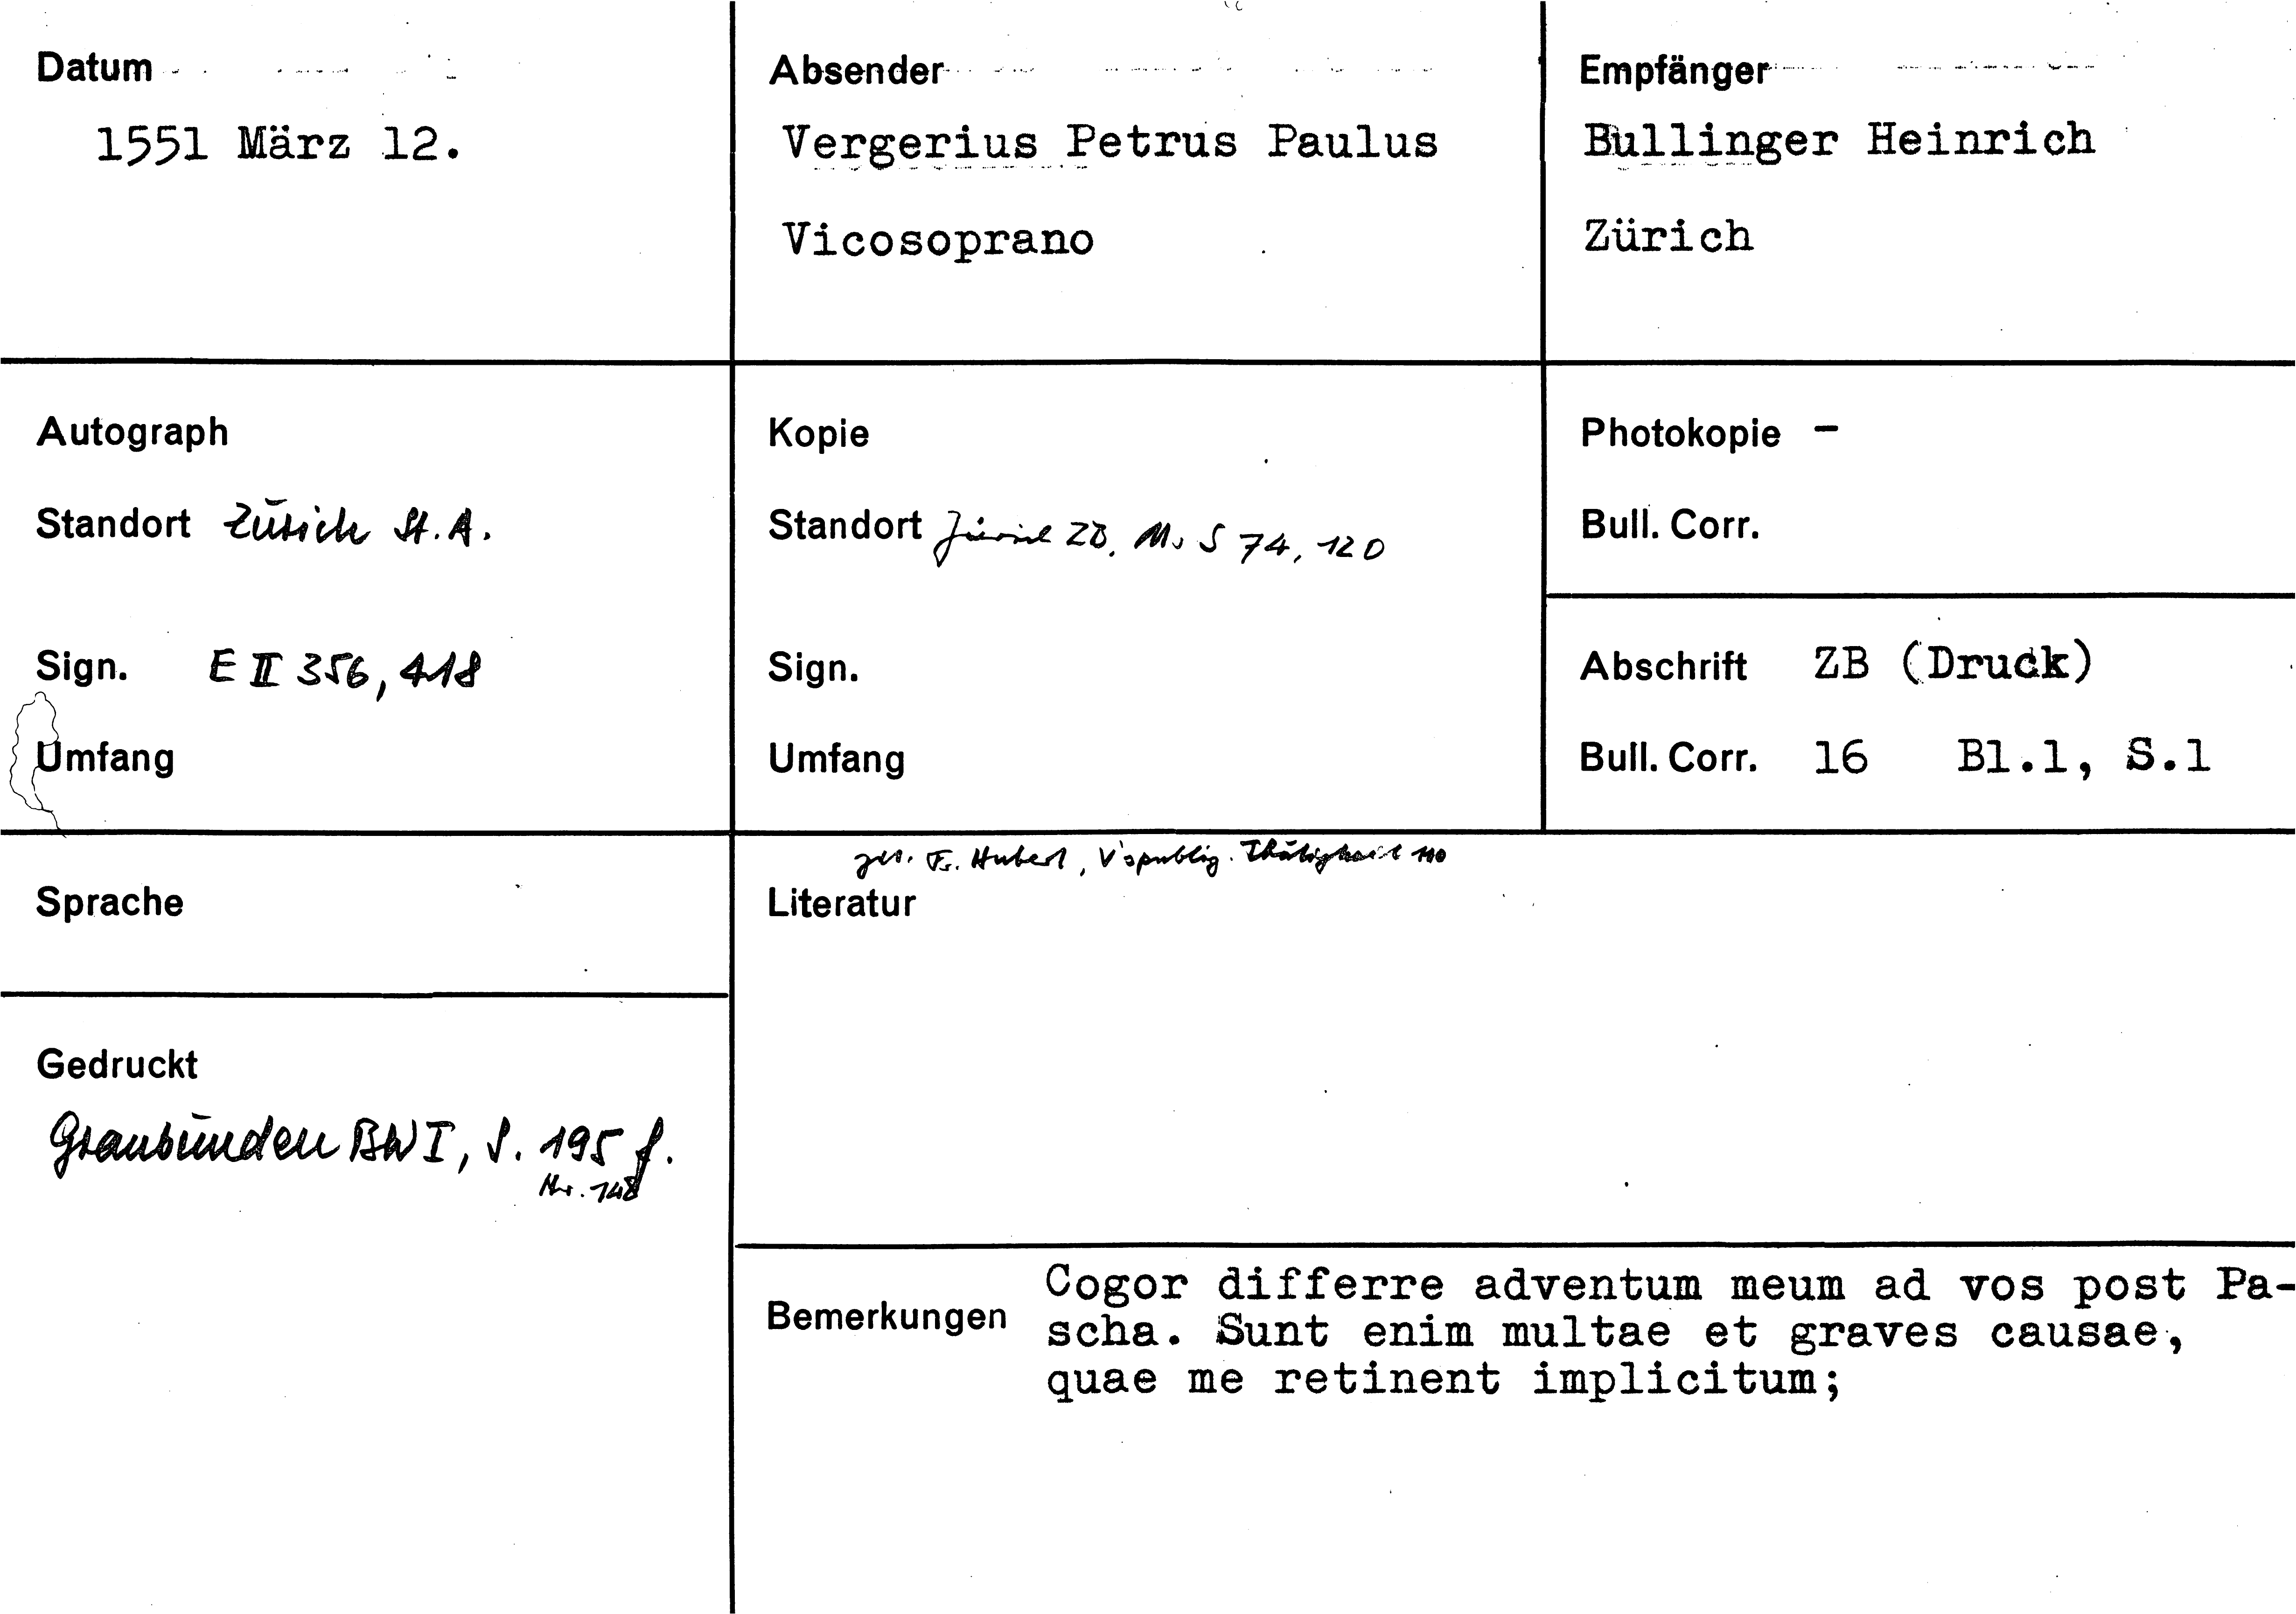 Datum
1551 März 12.
Absender
Vergerius Petrus Paulus
Vicosoprano
Empfänger
Bullinger Heinrich
Zürich
Autograph
Standort Zürich St. A.
Sign. E II 356, 418
Umfang
Kopie
Standort Zürich ZB, Ms S 74, 120
Sign.
Umfang
Photokopie -
Bull. Corr.
Abschrift ZB (Druck)
Bull. Corr. 16 Bl.1, S.1
Sprache
Gedruckt
Graubünden BW I, S. 195 f.
Nr. 148
Fr. Hubert, V's publiz. Thätigkeit 110
Literatur
Bemerkungen
Cogor differre adventum meum ad vos post Pa-
scha. Sunt enim multae et graves causae,
quae me retinent implicitum;